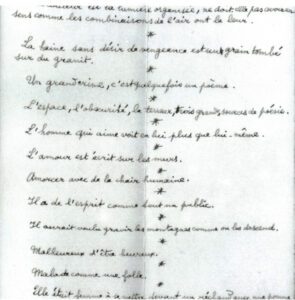 leur est sa lumière organisée, ne dont elle pas
sens comme les combinaisons de l'air ont la leur.
*
La haine sans désir de vengeance est un grain tombé
sur du granit.
*
Un grand crime, c'est quelquefois un poème.
*
L'espace, l'obscurité, la terreur, trois grandes sources de poésie.
*
L'homme qui aime voit en lui plus que lui-même.
*
L'amour est écrit sur les murs.
*
Amorcer avec de la chair humaine.
*
Il a de l'esprit comme tout un public.
*
Il aurait voulu gravir les montagnes comme on les descend.
*
Malheureux d'être heureux.
*
Malade comme une folle.
*
Elle était femme à se mettre devant un